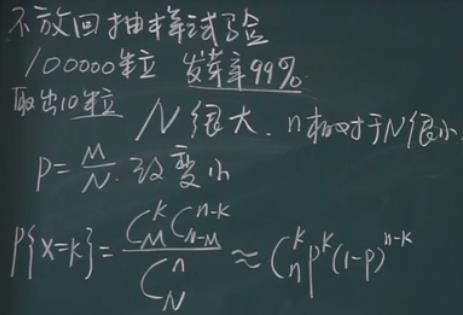 不放回抽样试验
100000粒 发芽率99%
取出10粒 N很大. n相对于N很小
P=M/N. 改变小
P{X=k}=C_M^k C_{n-M}^{n-k} / C_N^n ≈ C_n^k p^k (1-p)^{n-k}